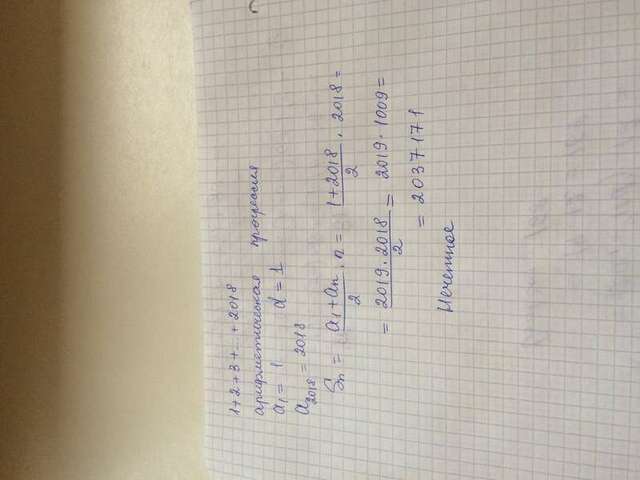 1+2+3+...+2018
арифметическая прогрессия
a₁ = 1 d = 1
a₂₀₁₈ = 2018
Sₙ = (a₁+aₙ)/2 · n = (1+2018)/2 · 2018 =
= (2019·2018)/2 = 2019·1009 =
= 2037171
Нечетное